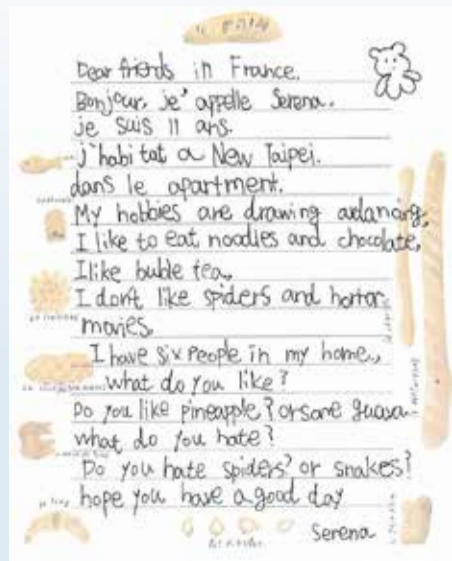 Dear friends in France.
Bonjour, je' appelle Serena.
je suis 11 ans.
j'habitat a New Taipei.
dans le apartment.
My hobbies are drawing adancing,
I like to eat noodles and chocolate,
I like buble tea,
I dont like spiders and horror
movies,
I have six people in my home.,
what do you like?
Do you like pineapple? orsare guava
what do you hate?
Do you hate spiders? or snakes?
hope you have a good day
Serena